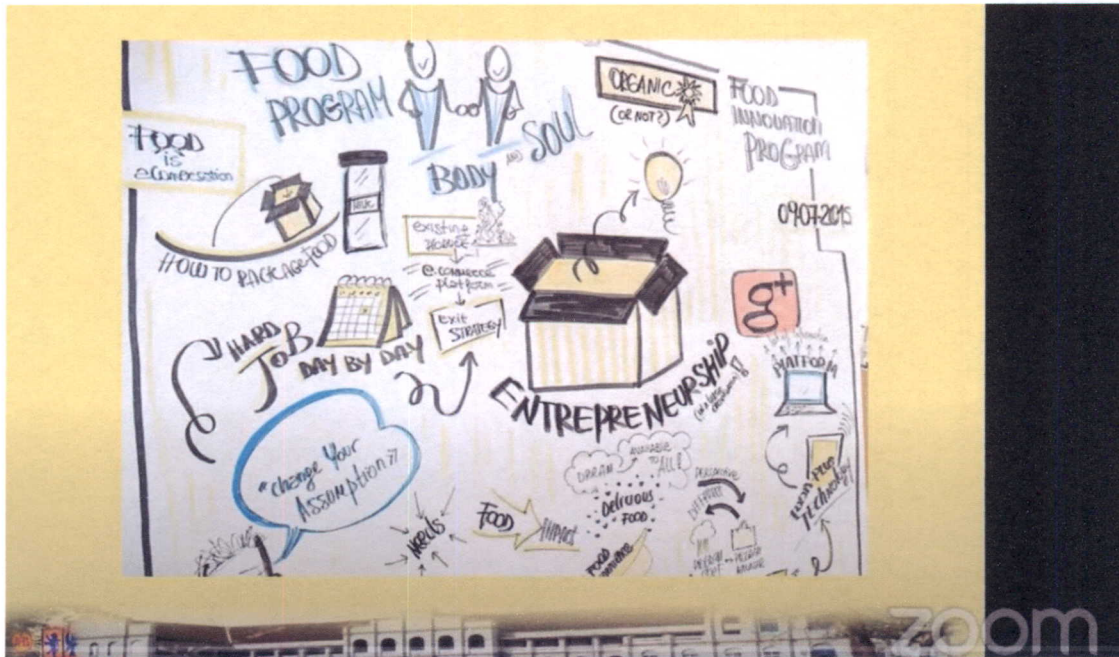 FOOD
PROGRAM
BODY AND SOUL
ORGANIC
(OR NOT?)
FOOD
INNOVATION
PROGRAM
09.07.2015
FOOD
is
HOW TO PACKAGE FOOD
MILK
existing
e-commerce
platform
exit
STRATEGY
HARD
JOB
DAY BY DAY
ENTREPRENEURSHIP
g+
PLATFORM
"Change Your
Assumption"
Needs
FOOD
IMPACT
DREAM
AVAILABLE
TO ALL!
Delicious
FOOD
FOOD
DIFFERENT
TECHNOLOGY
zoom